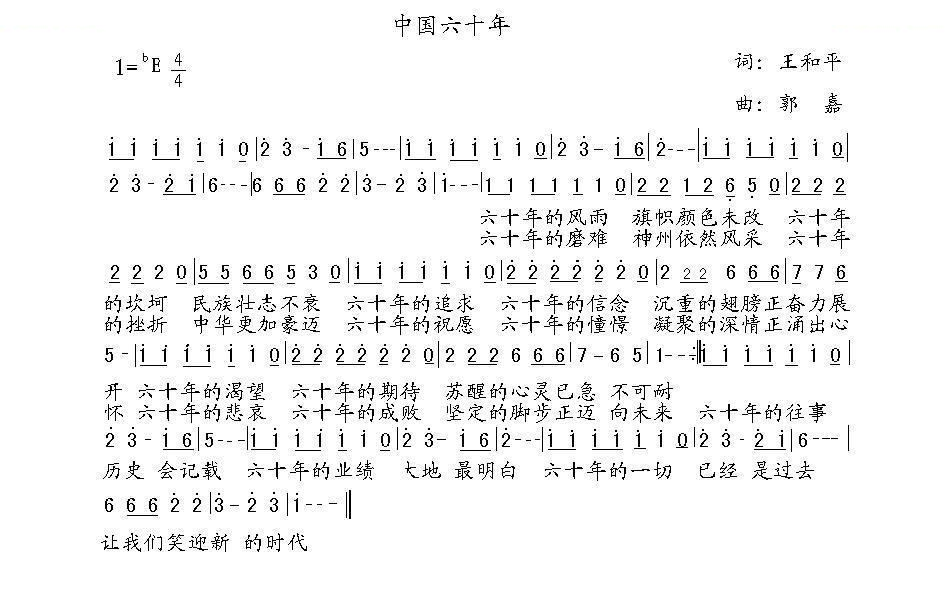 中国六十年
1=ᵇE 4/4
词：王和平
曲：郭 嘉
i i i i i i 0|2̇ 3̇ - i 6|5---|i i i i i i 0|2̇ 3̇ - i 6|2̇---|i i i i i i 0|
2̇ 3̇ - 2̇ i|6---|6 6 6 2̇ 2̇|3̇ - 2̇ 3̇|i---|1 1 1 1 1 1 0|2 2 1 2 6̣ 5̣ 0|2 2 2
六十年的风雨 旗帜颜色未改 六十年
六十年的磨难 神州依然风采 六十年
2 2 2 0|5 5 6 6 5 3 0|i i i i i i 0|2̇ 2̇ 2̇ 2̇ 2̇ 2̇ 0|2 2 2 6 6 6|7 7 6
的坎坷 民族壮志不衰 六十年的追求 六十年的信念 沉重的翅膀正奋力展
的挫折 中华更加豪迈 六十年的祝愿 六十年的憧憬 凝聚的深情正涌出心
5 -|i i i i i i 0|2̇ 2̇ 2̇ 2̇ 2̇ 2̇ 0|2 2 2 6 6 6|7 - 6 5|1--- :‖i i i i i i 0|
开 六十年的渴望 六十年的期待 苏醒的心灵已急 不可耐
怀 六十年的悲哀 六十年的成败 坚定的脚步正迈 向未来 六十年的往事
2̇ 3̇ - i 6|5---|i i i i i i 0|2̇ 3̇ - i 6|2̇---|i i i i i i 0|2̇ 3̇ - 2̇ i|6---|
历史 会记载 六十年的业绩 大地 最明白 六十年的一切 已经 是过去
6 6 6 2̇ 2̇|3̇ - 2̇ 3̇|i---‖
让我们笑迎新 的时代